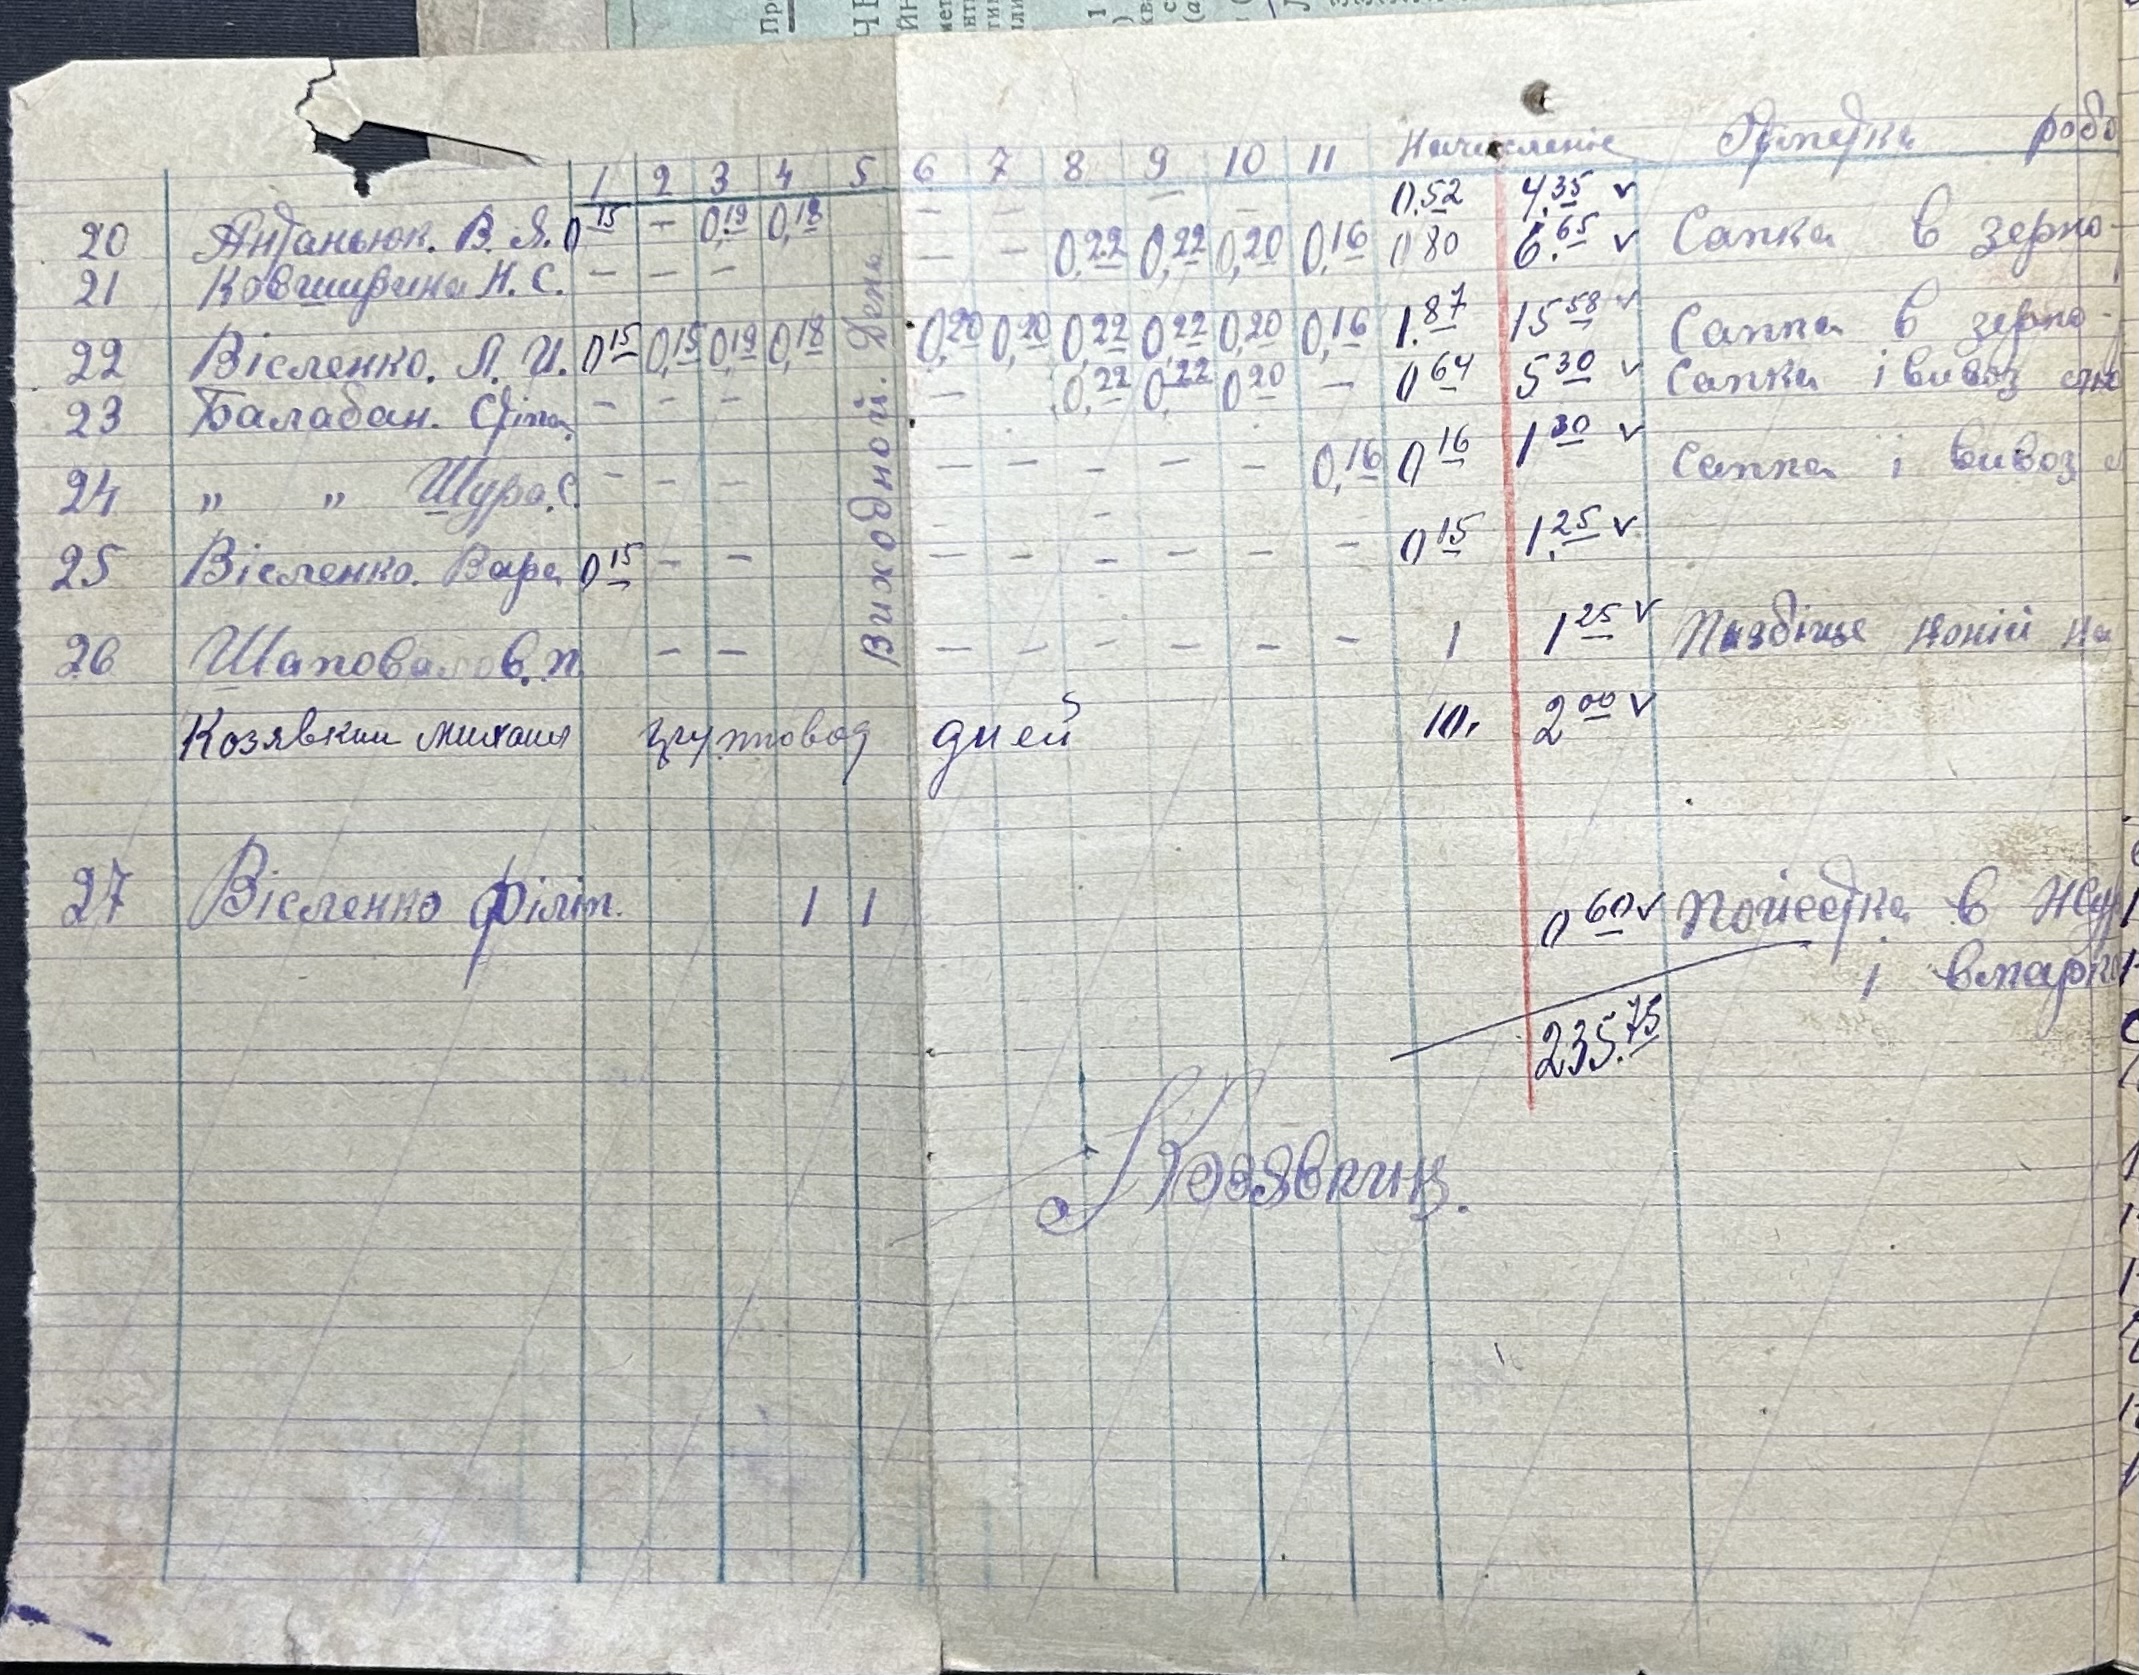 1 2 3 4 5 6 7 8 9 10 11 Начисленіе робо
20 Антанюк. В. Я. 0 15 – 0,19 0,18 – – – – 0.52 4.35 v
21 Ковширина Н. С. – – – – – 0,22 0,22 0,20 0,16 0 80 6.65 v Сапка в зерно-
22 Вісленко. Л. И. 0 15 0,15 0,19 0,18 0,20 0,20 0,22 0,22 0,20 0,16 1.87 15 58 v Сапка в зерно-
23 Балабан. – – – – 0,22 0,22 0 20 – 0 64 5 30 v Сапка і вивоз
24 „ „ Шура.С. – – – – – – – – 0,16 0 16 1 30 v Сапка і вивоз
25 Вісленко. Вара 0 15 – – – – – – – – 0 15 1.25 v
26 Шаповалов. п. – – – – – – – – 1 1 25 v коній на
Виходной. День
Козявкин михаил групповод дней 10. 2 00 v
27 Вісленко Філіп. 1 1 0 60 v Поїєстка в
і
235.75
Козявкин.